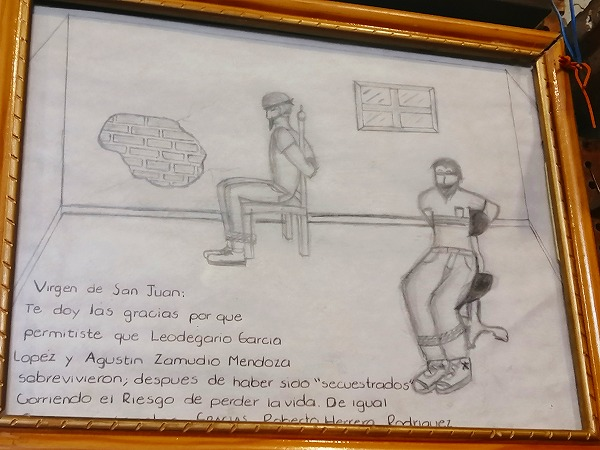 Virgen de San Juan:
Te doy las gracias por que
permitiste que Leodegario Garcia
Lopez y Agustin Zamudio Mendoza
sobrevivieron, despues de haber sido "secuestrados"
Corriendo el Riesgo de perder la vida. De igual
Gracias Roberto Herrera Rodriguez